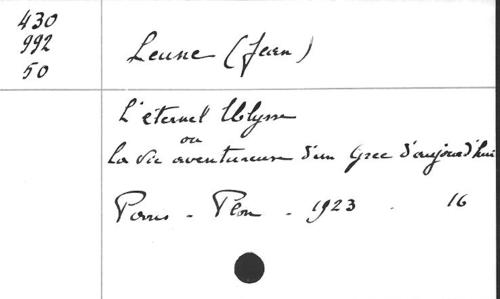 430
992
50
Leune (Jean)
L'éternel Ulysse
ou
La vie aventureuse d'un Grec d'aujourd'hui
Paris - Plon - 1923 - 16